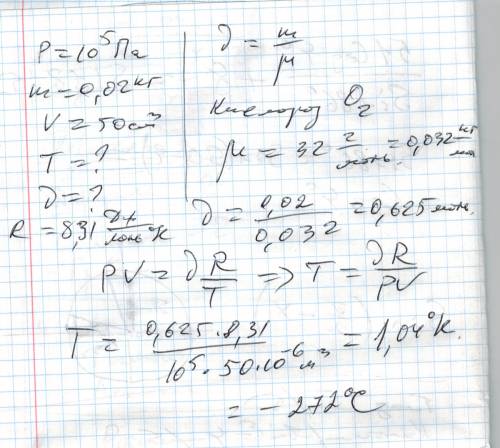 P = 10⁵ Па
m = 0,02 кг
V = 50 см³
T = ?
ν = ?
R = 8,31 Дж/моль°К
ν = m/μ
Кислород O₂
μ = 32 г/моль = 0,032 кг/моль
ν = 0,02/0,032 = 0,625 моль.
PV = ν R/T => T = νR/PV
T = 0,625 · 8,31 / 10⁵ · 50 · 10⁻⁶ м³ = 1,04°К.
= -272°C